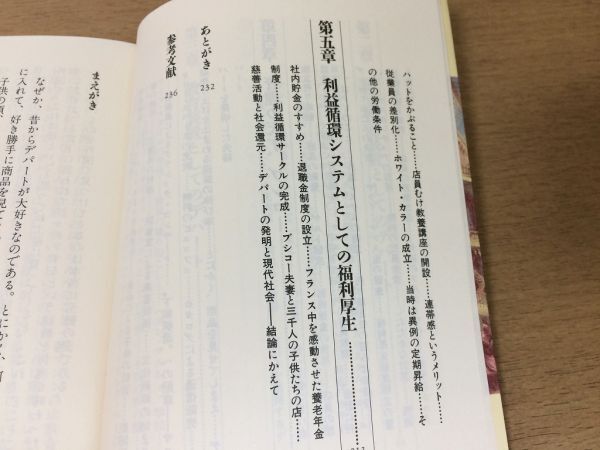 ハットをかぶること……店員むけ教養講座の開設……連帯感というメリット……
従業員の差別化……ホワイト・カラーの成立……当時は異例の定期昇給……そ
の他の労働条件
第五章 利益循環システムとしての福利厚生…………
社内貯金のすすめ……退職金制度の設立……フランス中を感動させた養老年金
制度……利益循環サークルの完成……ブシコー夫妻と三千人の子供たちの店……
慈善活動と社会還元……デパートの発明と現代社会――結論にかえて
あとがき 232
参考文献 236
まえがき
なぜか、昔からデパートが大好きなのである。とにかく、
に入れて、好き勝手に商品を見て
子供の頃、